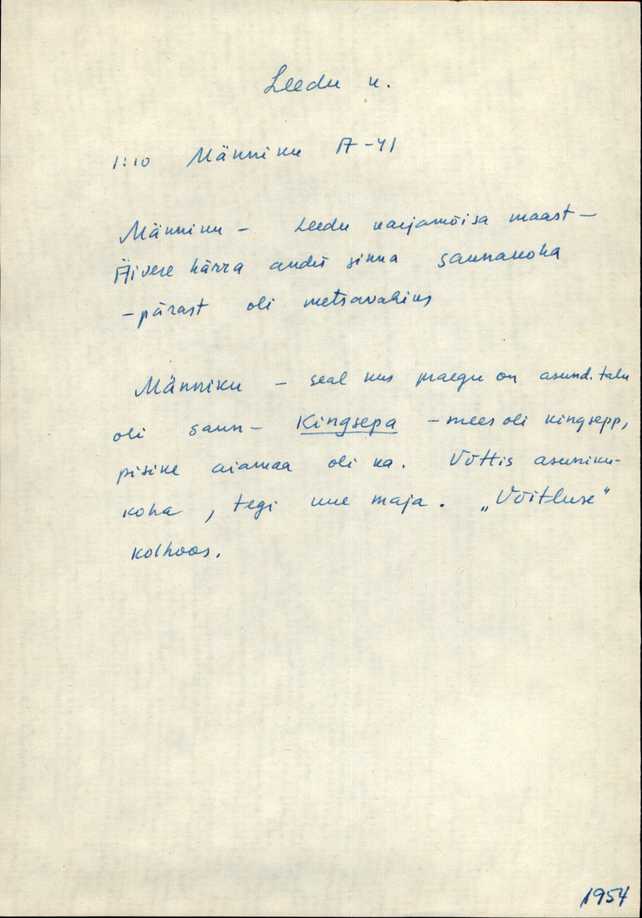 Leedu k.
1:10 Männiku A-41
Männiku - Leedu karjamõisa maast -
Äivere härra andis sinna saunakoha
- pärast oli metsavahikoht
Männiku - seal kus praegu on asund. talu
oli saun - Kingsepa - mees oli kingsepp,
pisike aiamaa oli ka. Võttis asuniku-
koha, tegi uue maja. „Võitluse"
kolhoos.
1954